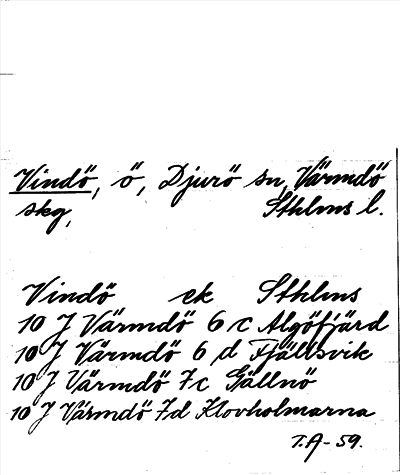 Vindö, ö, Djurö sn, Värmdö
skg, Sthlms l.
Vindö ek Sthlms
10 J Värmdö 6 c Älgöfjärd
10 J Värmdö 6 d Fjällsvik
10 J Värmdö 7c Gällnö
10 J Värmdö 7d Klovholmarna
T.A-59.